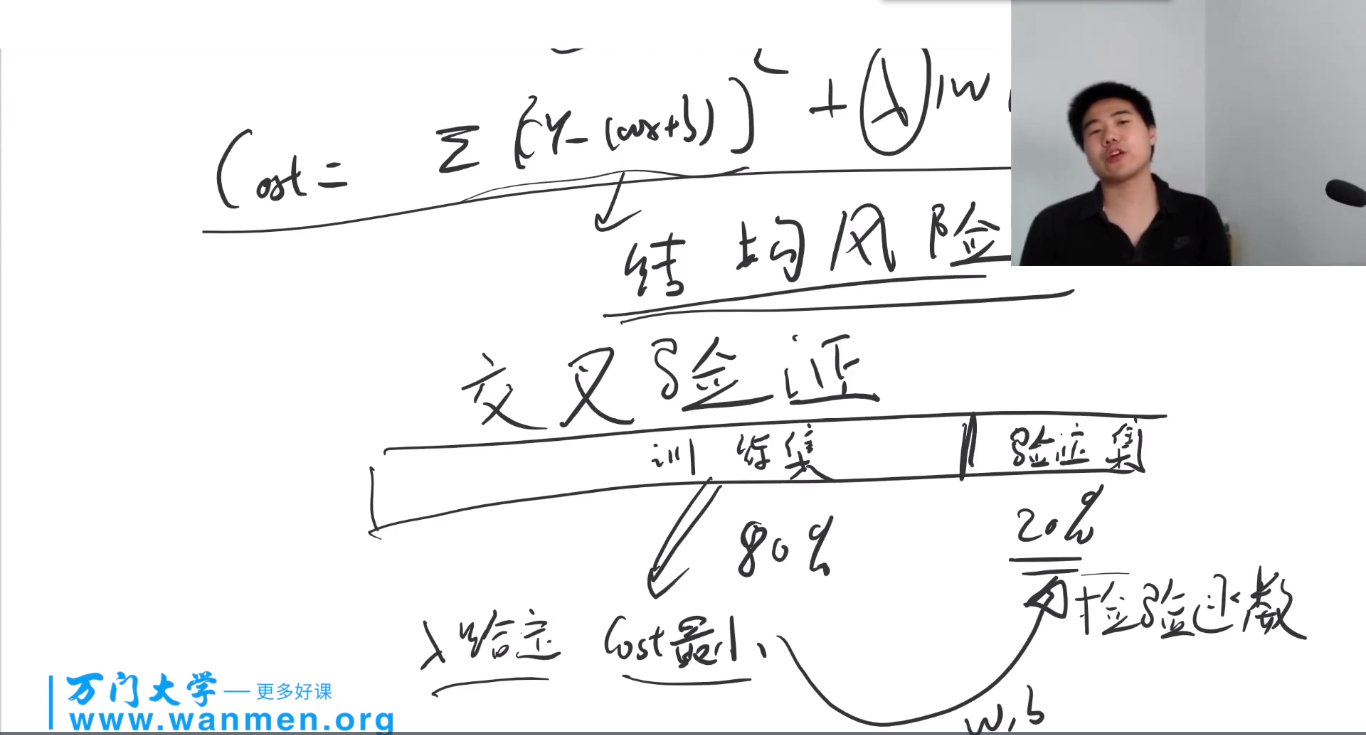 Cost = Σ [Y-(wx+b)]² + λ|w
结构风险
交叉验证
训练集 验证集
80% 20%
检验函数
λ给定 Cost最小
w,b
万门大学 — 更多好课
www.wanmen.org